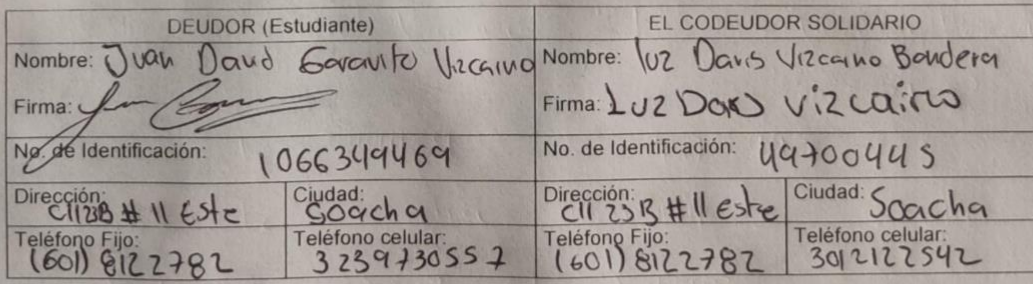 DEUDOR (Estudiante)
EL CODEUDOR SOLIDARIO
Nombre: Juan David Garavito Vizcaino
Nombre: luz Daris Vizcaino Bandera
Firma:
Firma: Luz Daris vizcaino
No. de Identificación: 1066349469
No. de Identificación: 49700445
Dirección: Cll 23B # 11 Este
Ciudad: Soacha
Dirección: Cll 23B # 11 Este
Ciudad: Soacha
Teléfono Fijo: (601) 8122782
Teléfono celular: 3239730557
Teléfono Fijo: (601) 8122782
Teléfono celular: 3012122542